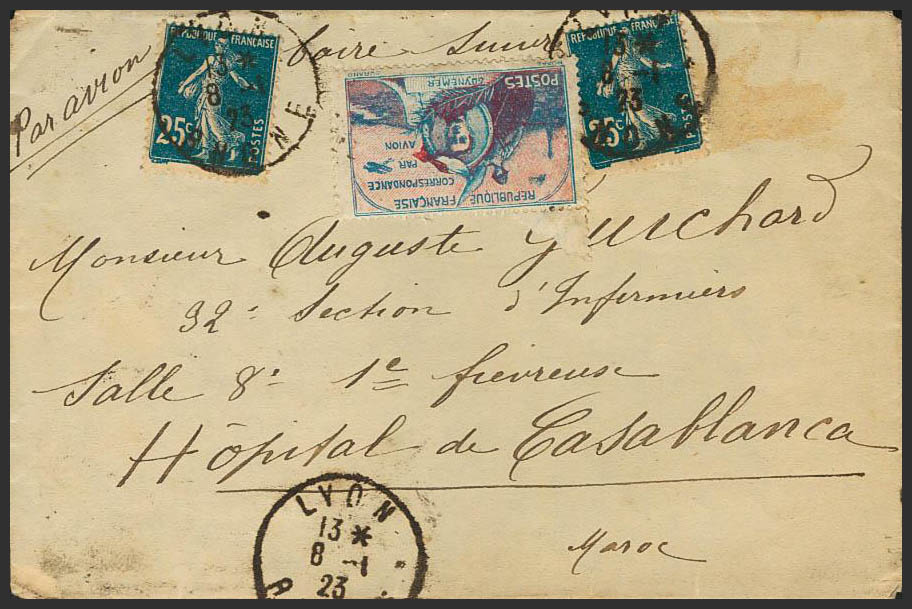 Par avion
RÉPUBLIQUE FRANÇAISE
25c
POSTES
POSTES
GUYNEMER
PAR
AVION
CORRESPONDANCE
REPUBLIQUE FRANÇAISE
RÉPUBLIQUE FRANÇAISE
25c
POSTES
13 *
8 -1
23
Monsieur Auguste Guichard
32e Section d'Infirmiers
Salle 8e 1e fievreuse
Hôpital de Casablanca
Maroc
LYON
13 *
8 -1
23